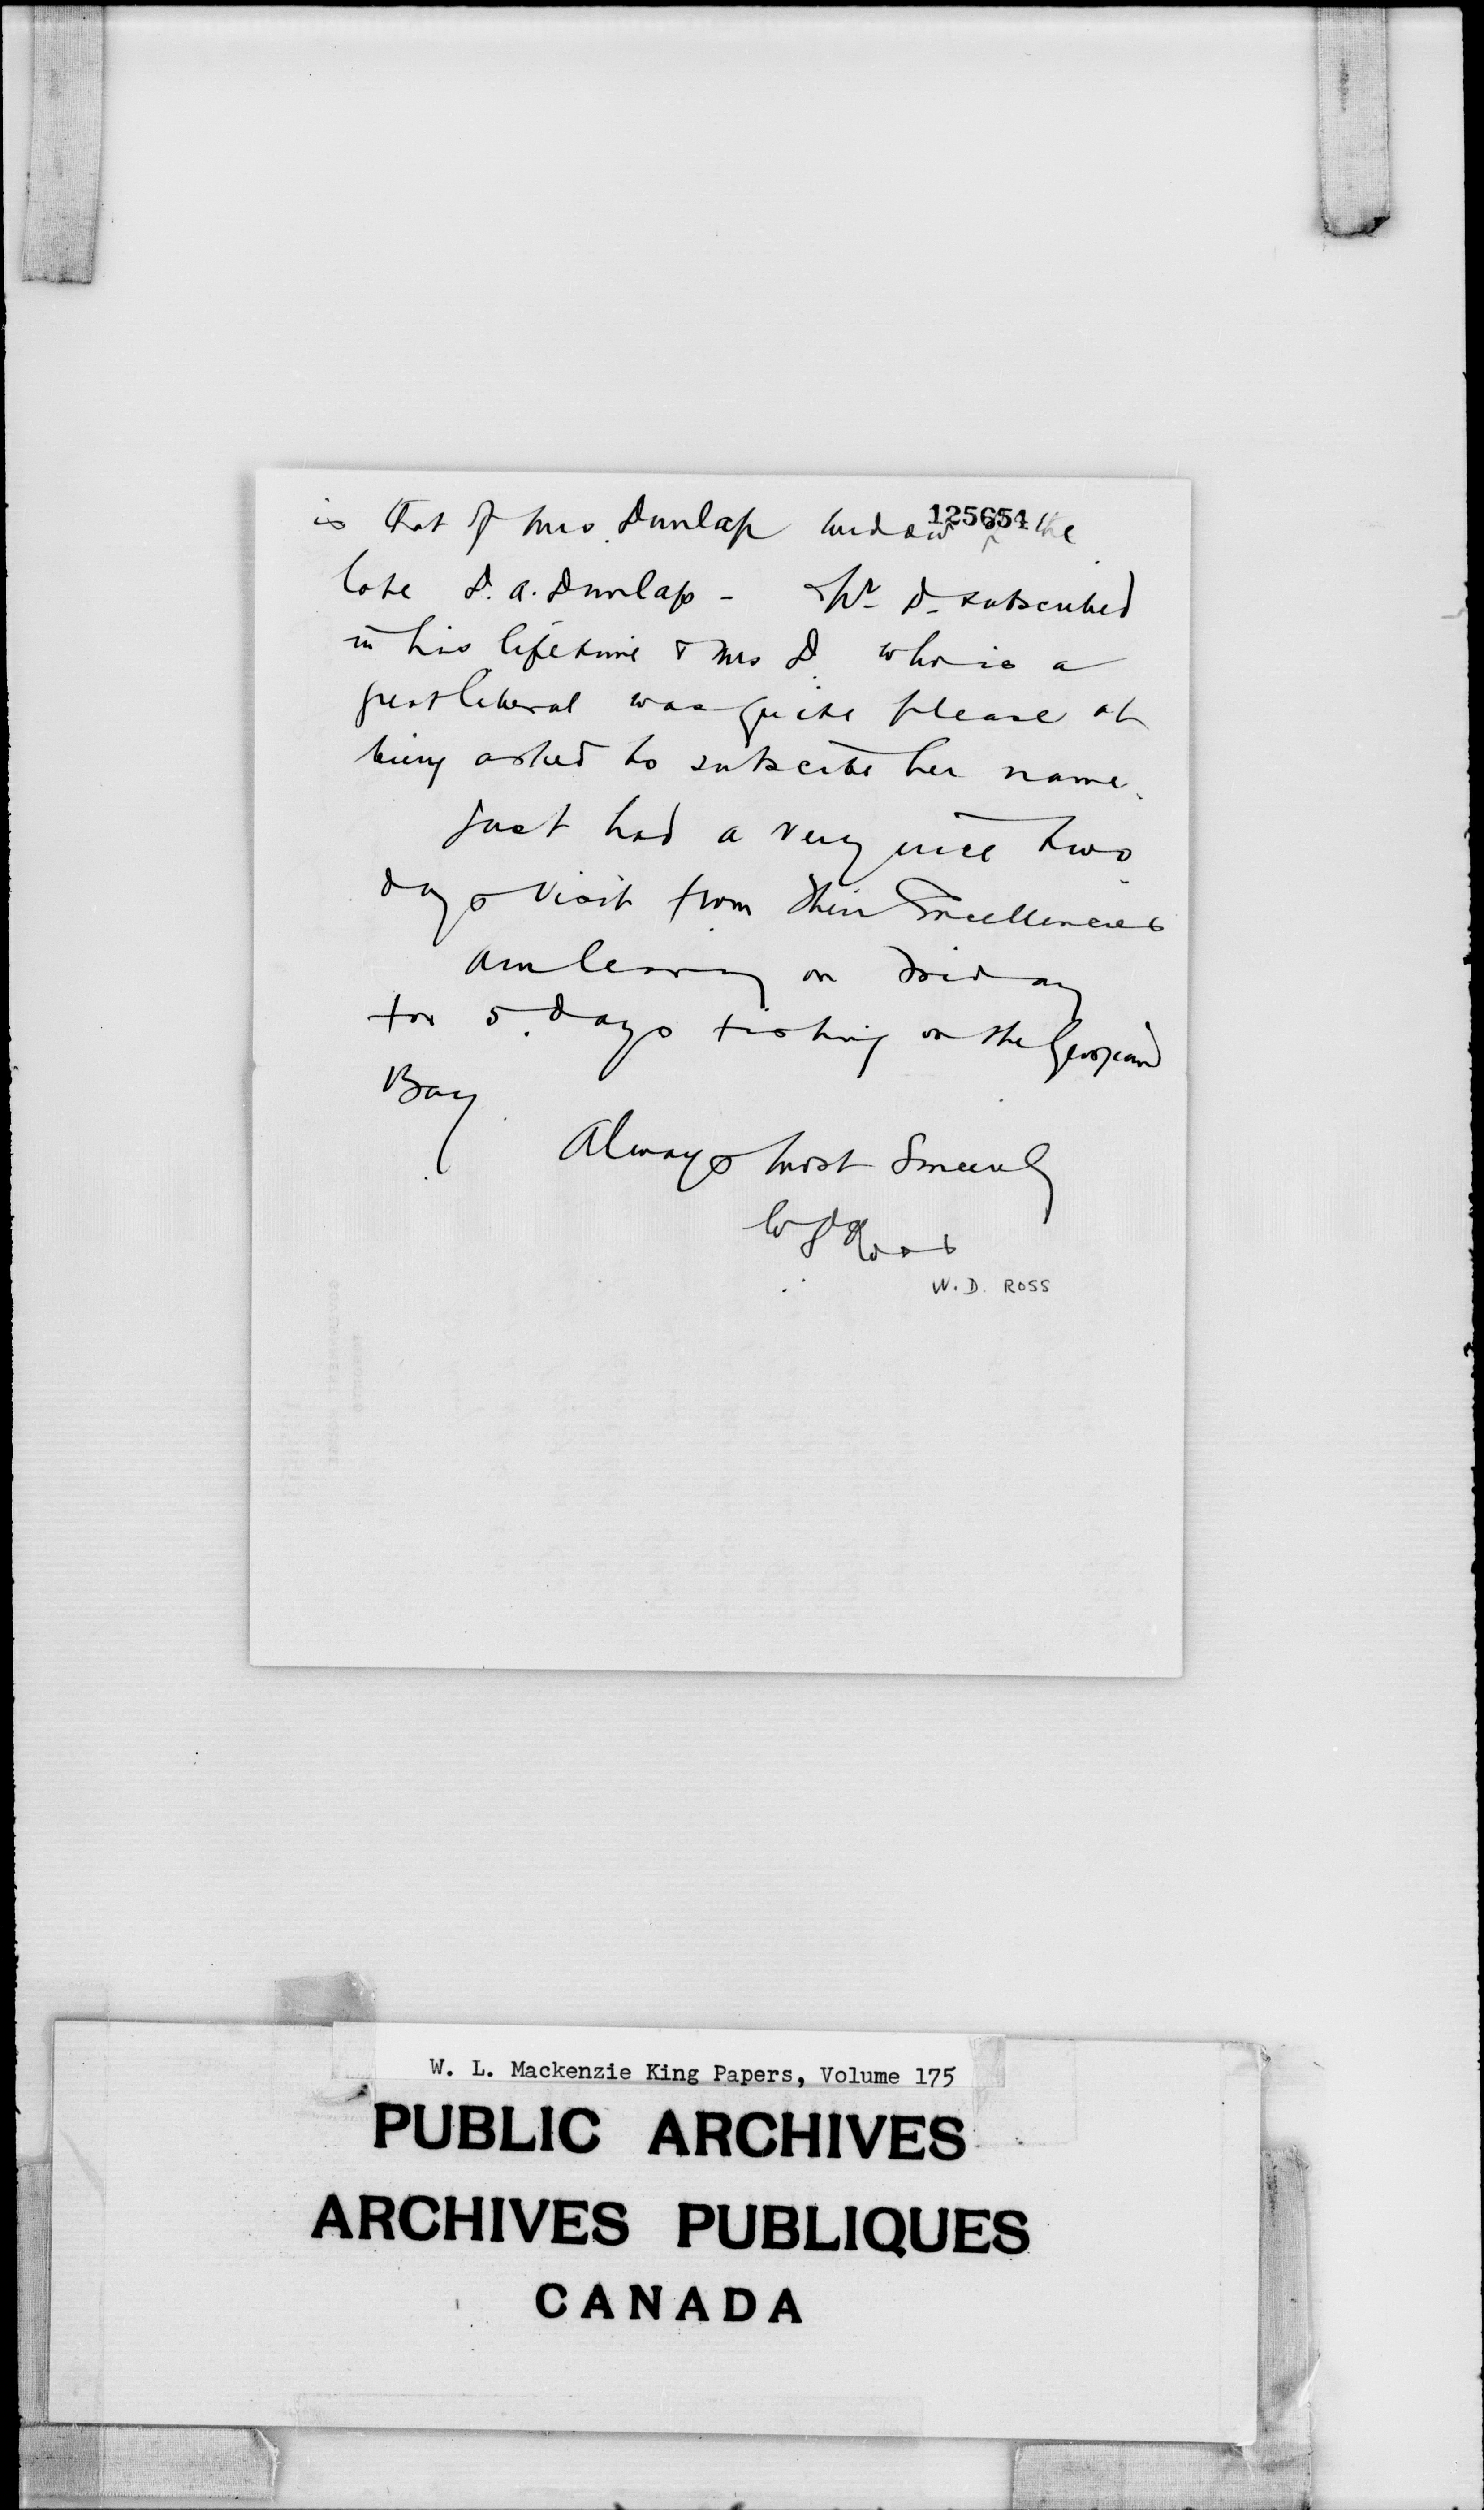 125654
is that of Mrs. Dunlap widow of the
late D. A. Dunlap - Mr D. subscribed
in his lifetime & Mrs D. who is a
great liberal was quite please at
being asked to subscribe her name.
Just had a very nice two
days visit from Their Excellencies
Am leaving on Friday
for 5 days fishing on the Georgian
Bay
Always most Sincerely
W D Ross
W. D. ROSS
W. L. Mackenzie King Papers, Volume 175
PUBLIC ARCHIVES
ARCHIVES PUBLIQUES
CANADA